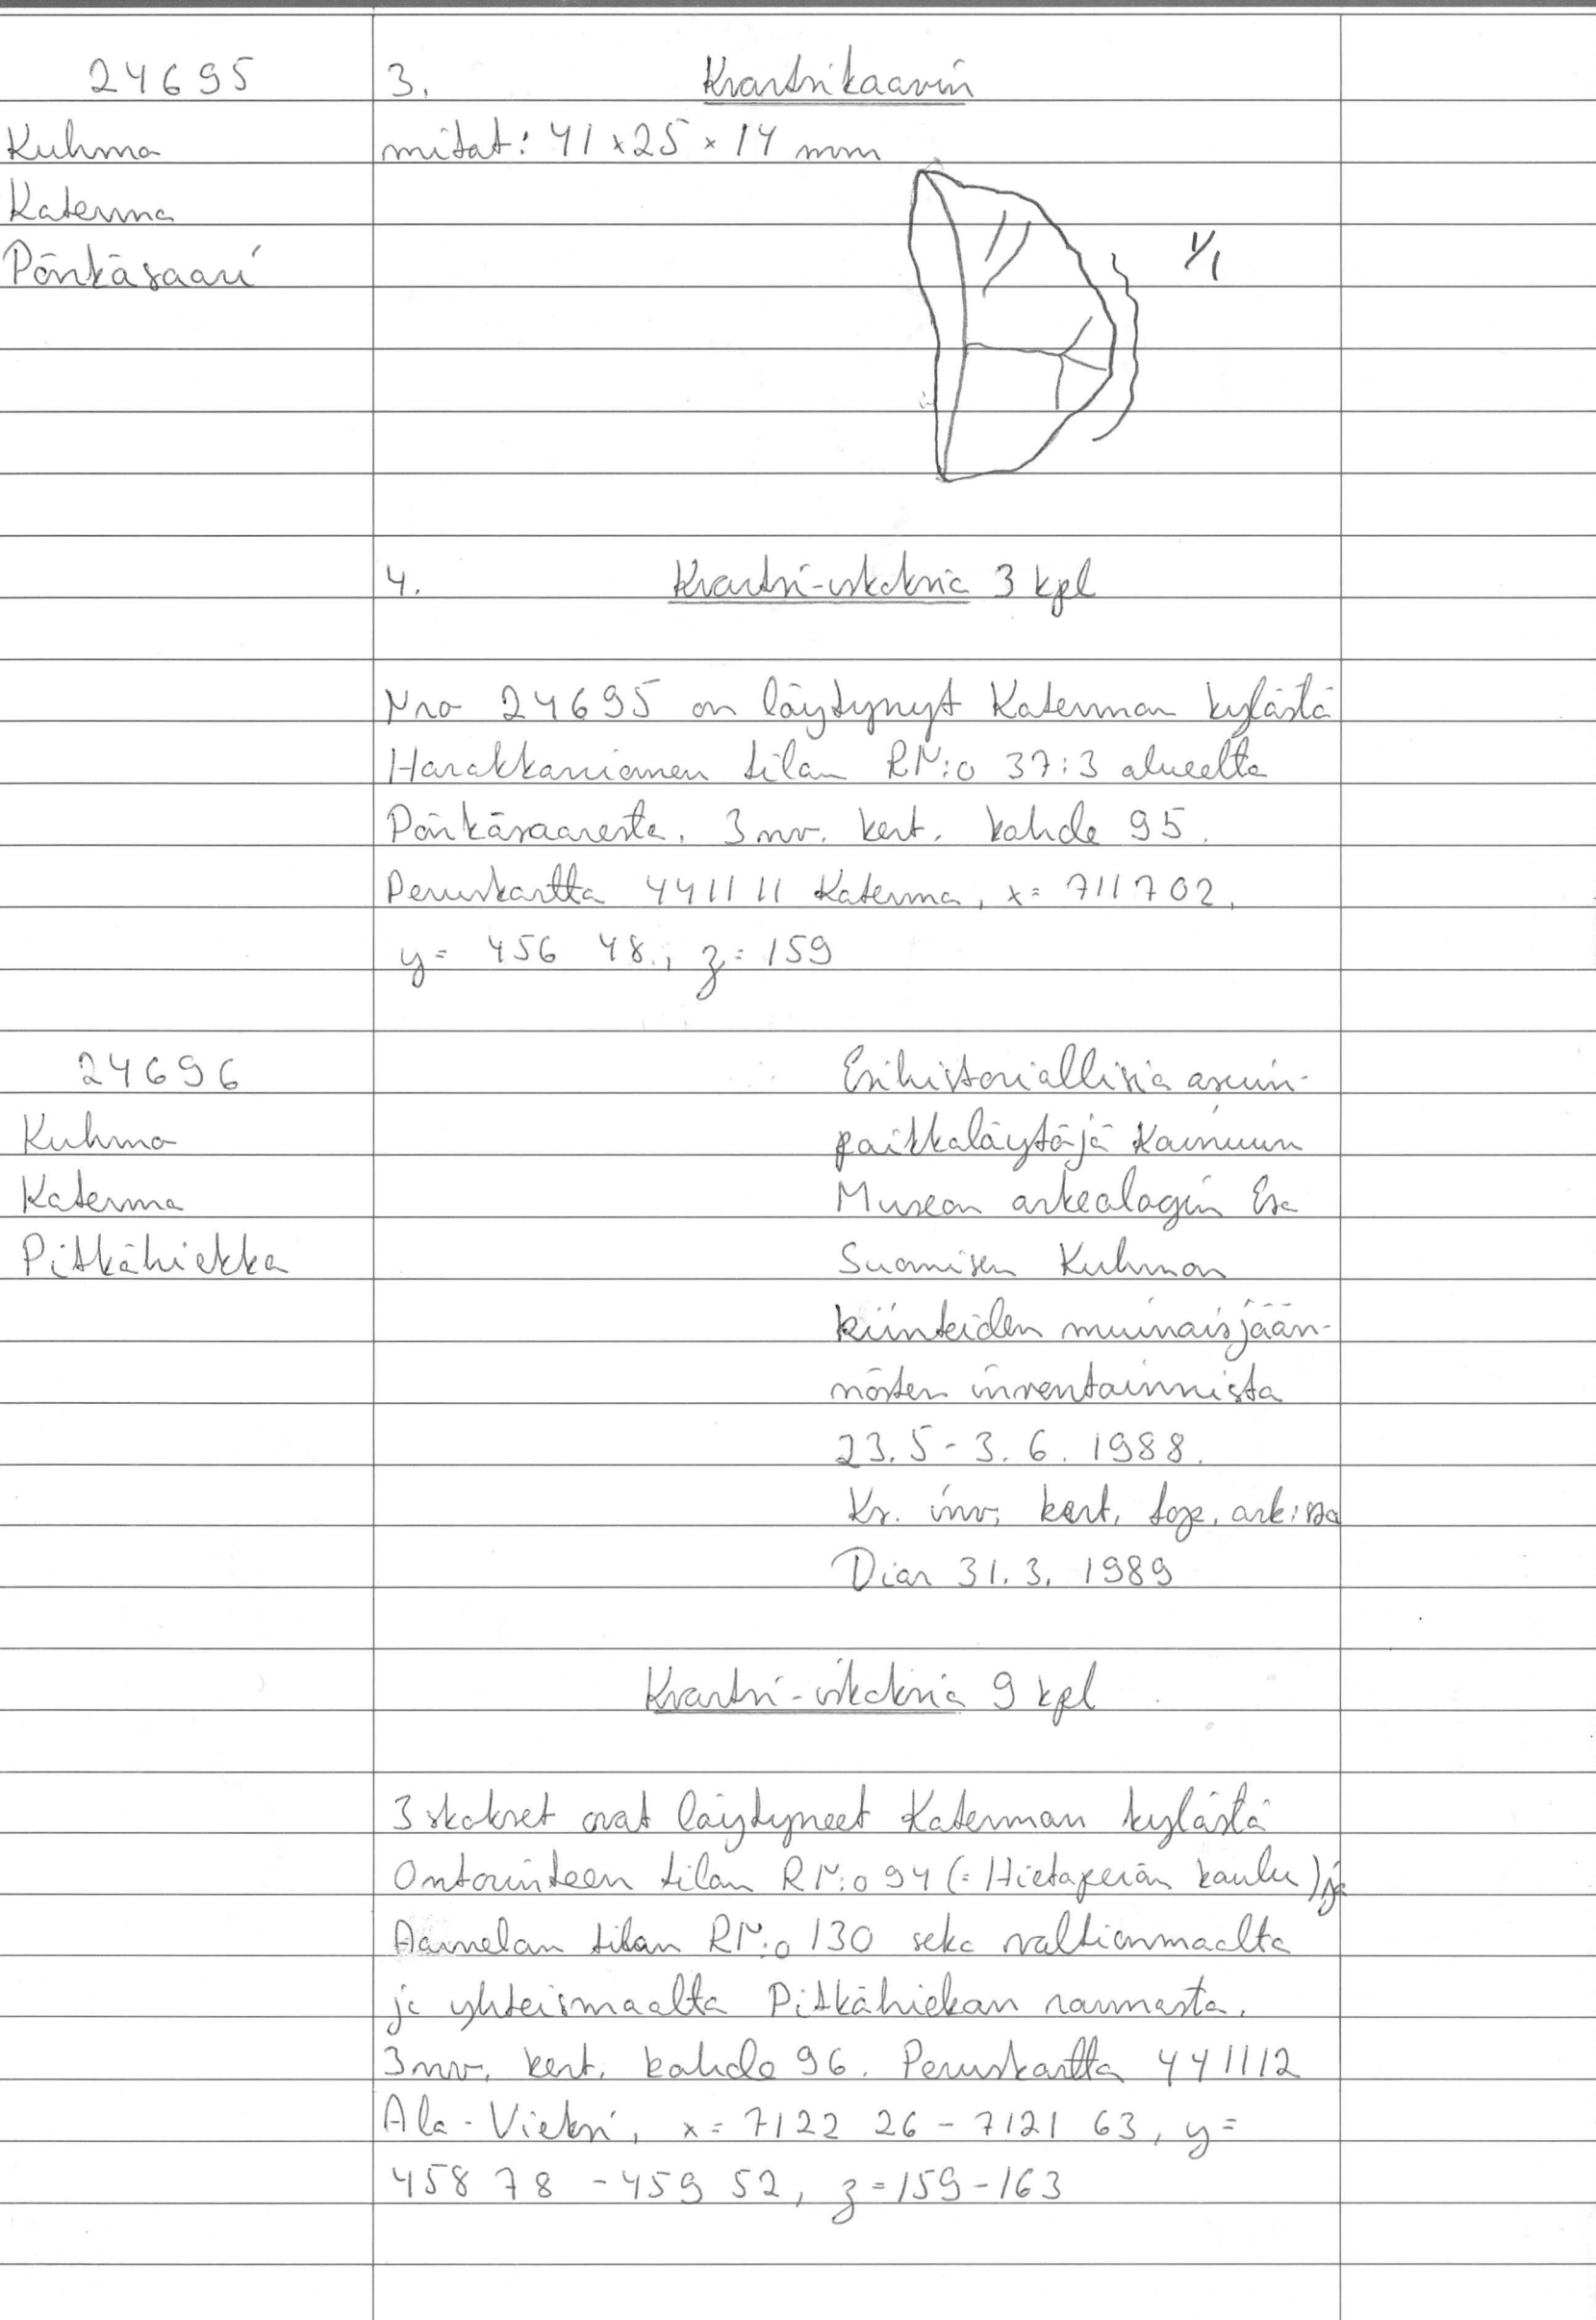 24695
Kuhmo
Katerma
Pönkäsaari
3. Kvartsikaavin
mitat: 41 x 25 x 14 mm
1/1
4. Kvartsi-iskoksia 3 kpl
Nro 24695 on löytynyt Katerman kylästä
Harakkaniemen tilan RN:o 37:3 alueelta
Pönkäsaaresta. Inv. kert. kohde 95.
Peruskartta 4411 11 Katerma, x= 711702,
y= 456 48, z= 159
24696
Kuhmo
Katerma
Pitkähiekka
Esihistoriallisia asuin-
paikkalöytöjä Kainuun
Museon arkeologin Esa
Suomisen Kuhmon
kiinteiden muinaisjään-
nösten inventoinnista
23.5 - 3.6. 1988.
Ks. inv. kert. top. ark:ssa
Diar 31.3. 1989
Kvartsi-iskoksia 9 kpl
Iskokset ovat löytyneet Katerman kylästä
Ontorinteen tilan RN:o 94 (= Hietaperän koulu) ja
Aarnelan tilan RN:o 130 sekä valtionmaalta
ja yhteismaalta Pitkähiekan rannasta.
Inv. kert. kohde 96. Peruskartta 441112
Ala-Vieksi, x= 7122 26 - 7121 63, y=
458 78 - 459 52, z = 159 - 163